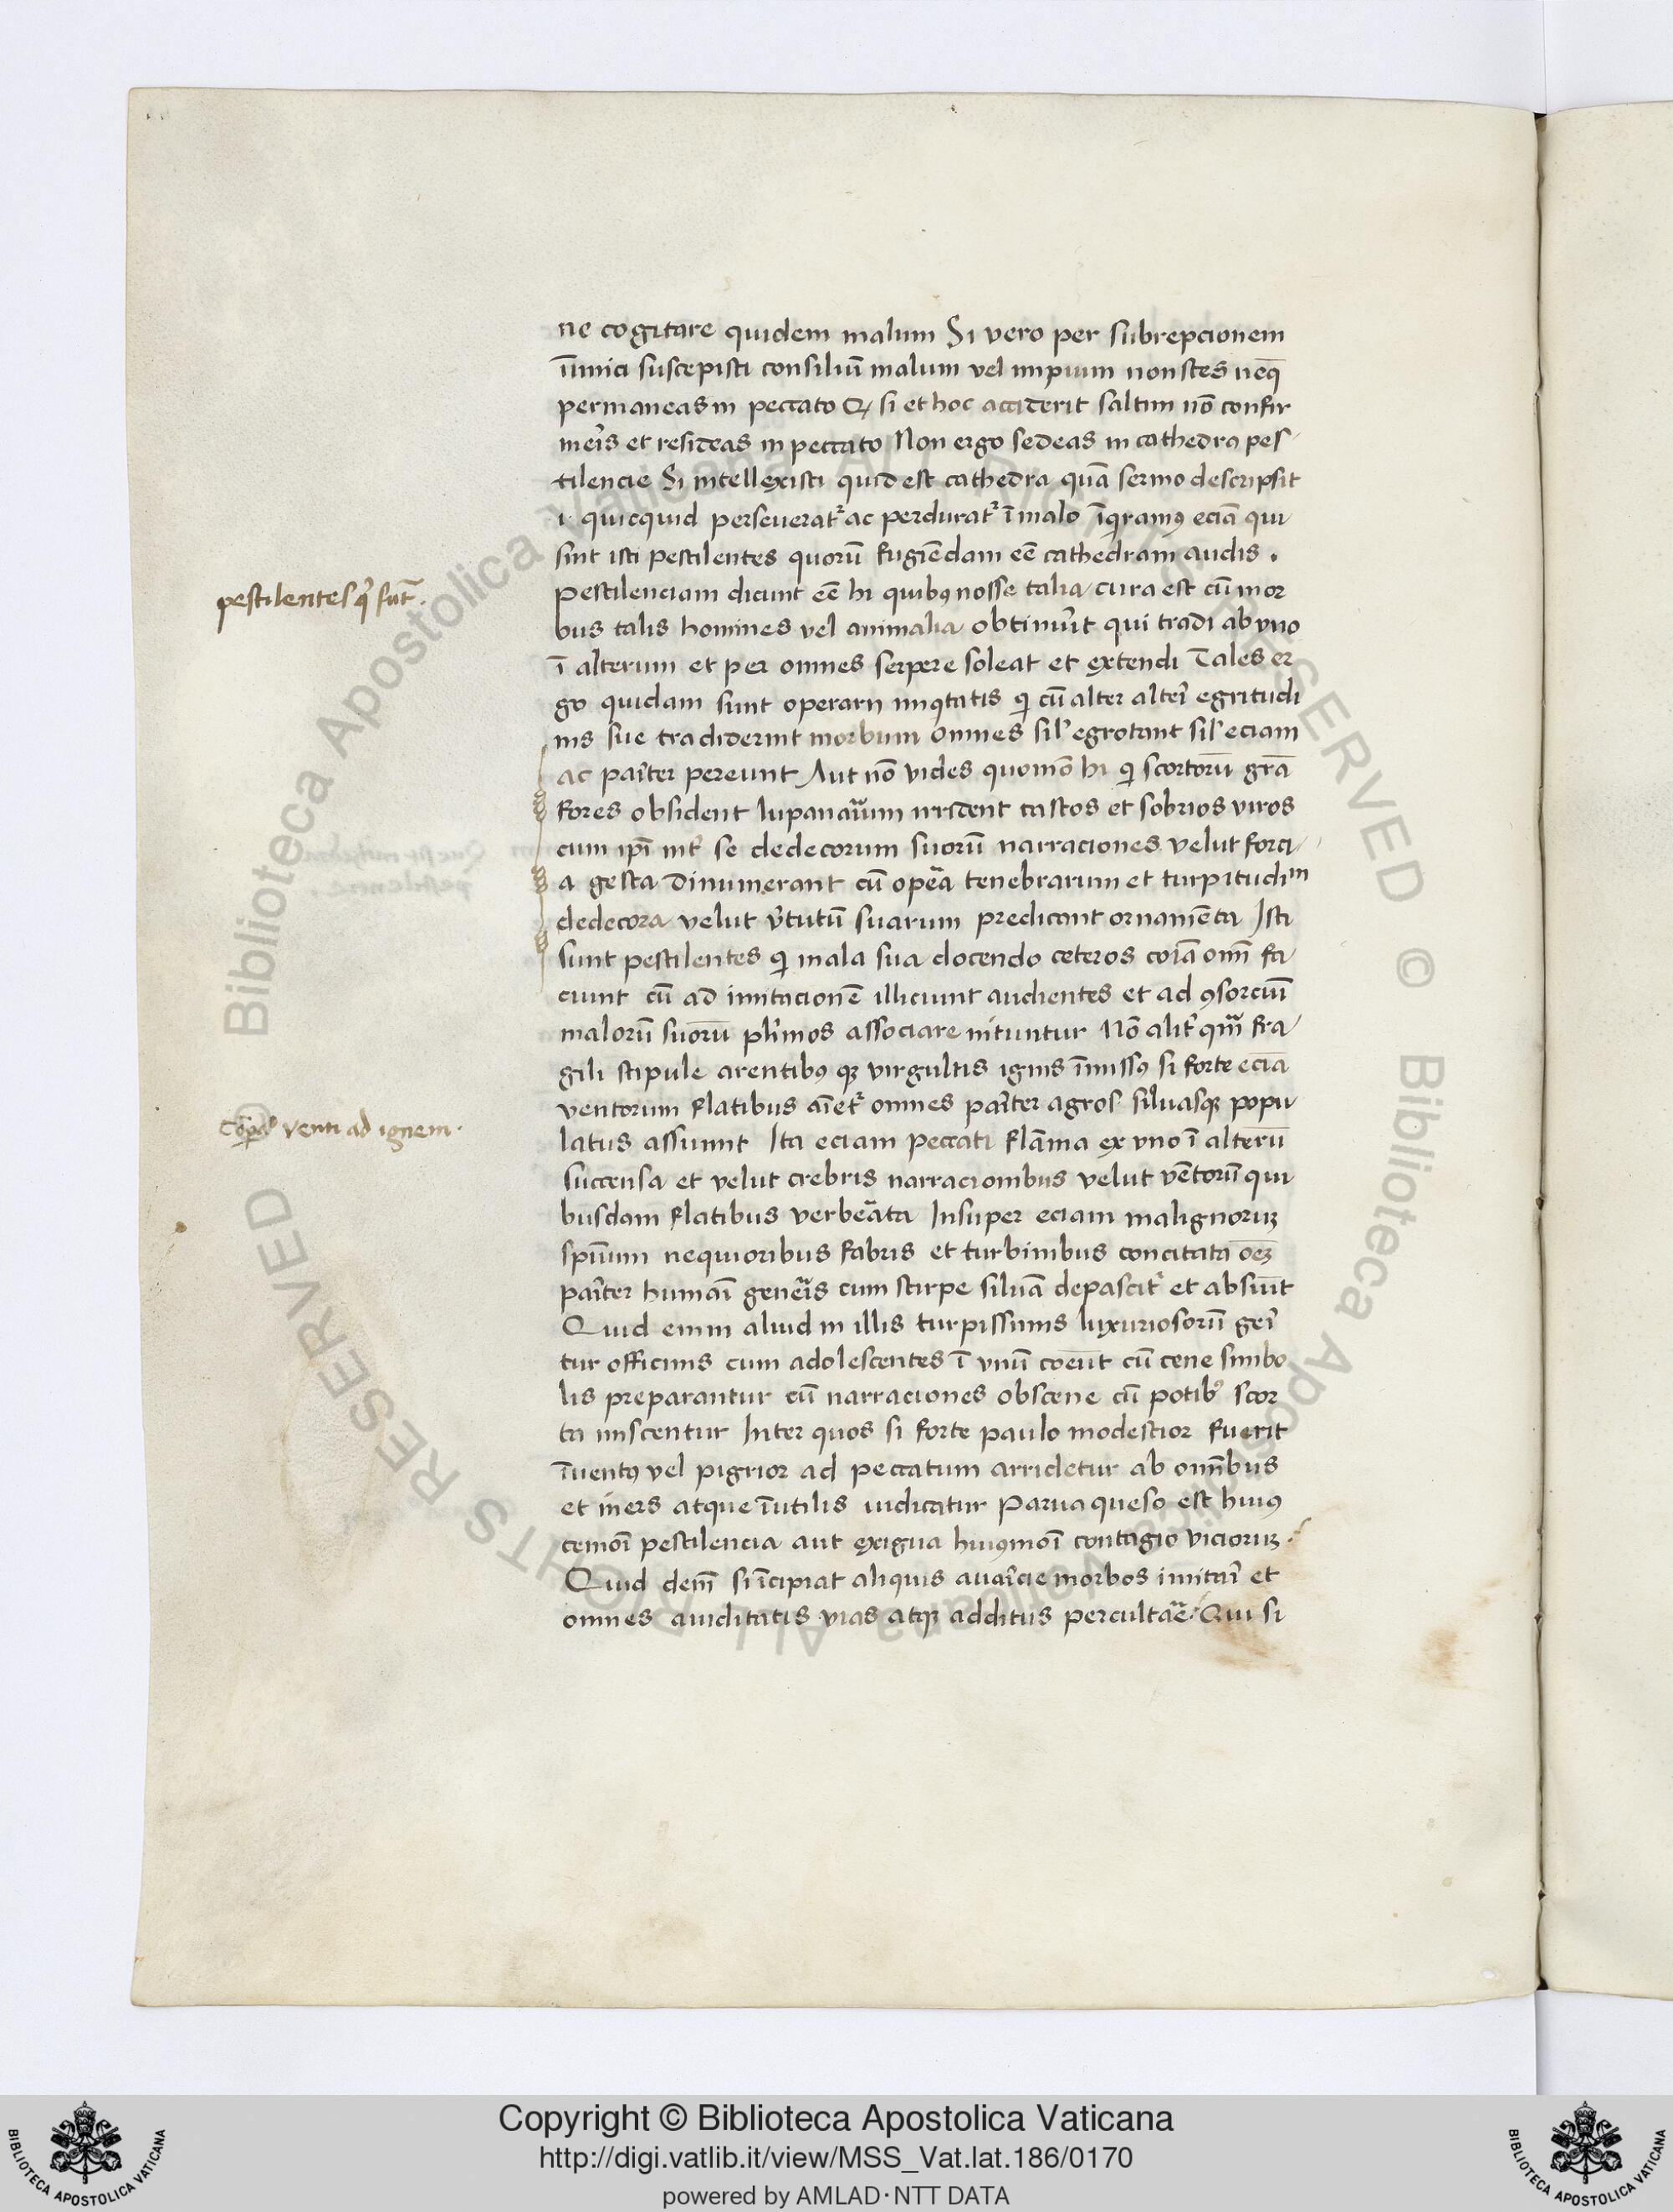 ne cogitare quidem malum Si vero per subrepcionem
īimici suscepisti consiliū malum vel impium non stes neq̄
permaneas in peccato Q̧ si et hoc acciderit saltim nō confir
mer̄is et resideas in peccato Non ergo sedeas in cathedra pes
pestilentes q̄ sūt.
tilencie Si intellexisti quid est cathedra quā sermo descripsit
i· quicquid perseuerat̄ ac perdurat̄ ī malo īqramꝰ eciā qui
sint isti pestilentes quorū fugiēdam eē cathedram audis .
Pestilenciam dicunt eē hi quibꝰ nosse talia cura est cū mor
bus talis homines vel animalia obtinūit qui tradi ab vno
ī alterum et per omnes serpere soleat et extendi Tales er
go quidam sunt operarii iniqtatis qi cū alter alteri̅ egritudi
nis sue tradiderint morbum omnes sil' egrotant sil' eciam
ac par̄iter pereunt Aut nō vides quomō hi qi scortorū grā
fores obsident lupanarium irrident castos et sobrios viros
cum ip̄i int̄ se dedecorum suorū narraciones velut forci
a gesta dinumerant cū opera tenebrarum et turpitudin
dedecora velut v̄tutū suarum predicant ornamēta Isti
sunt pestilentes qi mala sua docendo ceteros corā om̄i fa
ciunt cū ad imitacionē illiciunt audientes et ad ꝯsorciū
malorū suorū pl̄imos associare nituntur Nō alit̄ qm̄ fra
gili stipule arentibꝰ qꝫ virgultis ignis īmissꝰ si forte ecia
Cōpō venti ad ignem·
ventorum flatibus aīet̄ omnes par̄iter agros siluasqꝫ popu
latus assumit Ita eciam peccati flāma ex vno ī alterū
succensa et velut crebris narracionibus velut vētorū qui
busdam flatibus verberata Insuper eciam malignorꝫ
spūum nequioribus fabris et turbinibus concitata oēꝫ
par̄iter humāi gener̄is cum stirpe siluā depascit̄ et absūit
Quid enim aliud in illis turpissimis luxuriosorū ger̄i
tur officinis cum adolescentes ī vnū coeūt cū cene simbo
lis preparantur cū narraciones obscene cū potibꝰ scor
ta miscentur Inter quos si forte paulo modestior fuerit
īuentꝰ vel pigrior ad peccatum arridetur ab om̄ibus
et iners atque īutilis iudicatur Parua queso est huiꝰ
cemōi pestilencia aut exigua huiꝰmōi contagio viciorꝫ·
Quid dem̄ si īcipiat aliquis auar̄icie morbos imitar̄i et
omnes auiditatis vias atqꝫ additus percultar̄e· Qui si
Copyright © Biblioteca Apostolica Vaticana
http://digi.vatlib.it/view/MSS_Vat.lat.186/0170
powered by AMLAD·NTT DATA
BIBLIOTECA APOSTOLICA VATICANA
BIBLIOTECA APOSTOLICA VATICANA
© Biblioteca Apostolica Vaticana ALL RIGHTS RESERVED
© Biblioteca Apostolica Vaticana ALL RIGHTS RESERVED